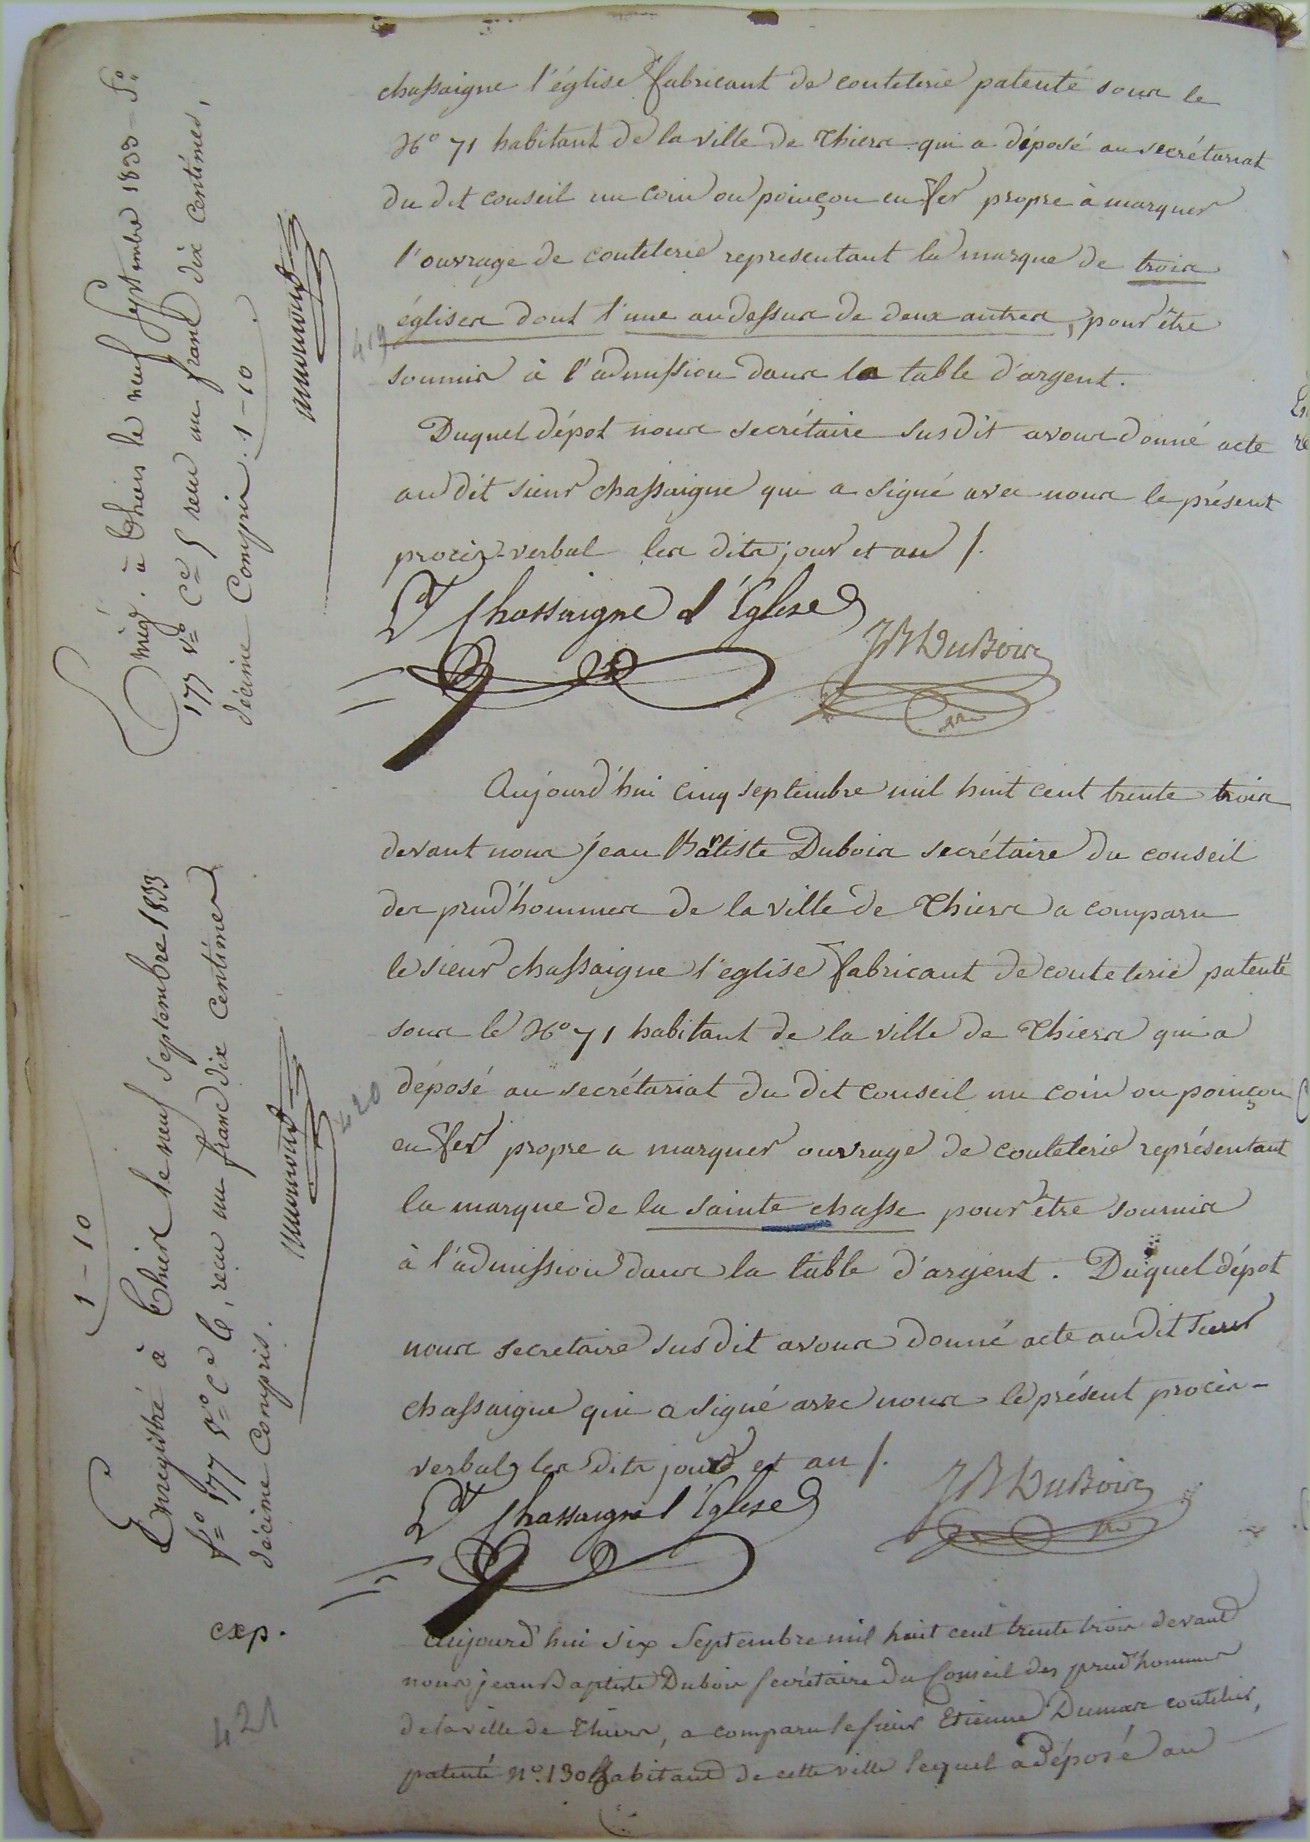 chassaigne l'église fabricant de coutelerie patenté sous le
N° 71 habitant de la ville de Thiers qui a déposé au secrétariat
du dit conseil un coin ou poinçon en fer propre à marquer
l'ouvrage de coutelerie representant la marque de trois
églises dont l'une audessus de deux autres, pour être
soumis à l'admission dans la table d'argent.
Duquel dépot nous secrétaire susdit avons donné acte
au dit sieur chassaigne qui a signé avec nous le présent
procès-verbal les dits jour et an /.
Dt Chassaigne l'Église
JB DuBois
Aujourd'hui cinq septembre mil huit cent trente trois
devant nous jean Batiste Dubois secrétaire du conseil
des prud'hommes de la ville de Thiers a comparu
le sieur chassaigne l'eglise fabricant de coutelerie patenté
sous le N° 71 habitant de la ville de Thiers qui a
déposé au secrétariat du dit conseil un coin ou poinçon
en fer propre a marquer ouvrage de coutelerie représentant
la marque de la sainte chasse pour être soumis
à l'admission dans la table d'argent. Duquel dépot
nous secretaire susdit avons donné acte au dit sieur
chassaigne qui a signé avec nous le présent procès-
verbal les dits jour et an /.
Dt Chassaigne l'Églese
JB DuBois
Aujourd'hui six Septembre mil huit cent trente trois devant
nous jean Baptiste Dubois secrétaire du Conseil des prud'hommes
de la ville de Thiers, a comparu le sieur Etienne Dumas coutelier,
patenté N°. 130 habitant de cette ville lequel a déposé au
Enreg. à Thiers le neuf Septembre 1833 - f°
177 v° Ce 5 reçu un franc dix centimes,
décime Compris. 1-10.
419
1-10
Enregistré à Thiers le neuf septembre 1833
f° 177 v° Ce 6, reçu un franc dix centimes
décime Compris.
420
exp.
421